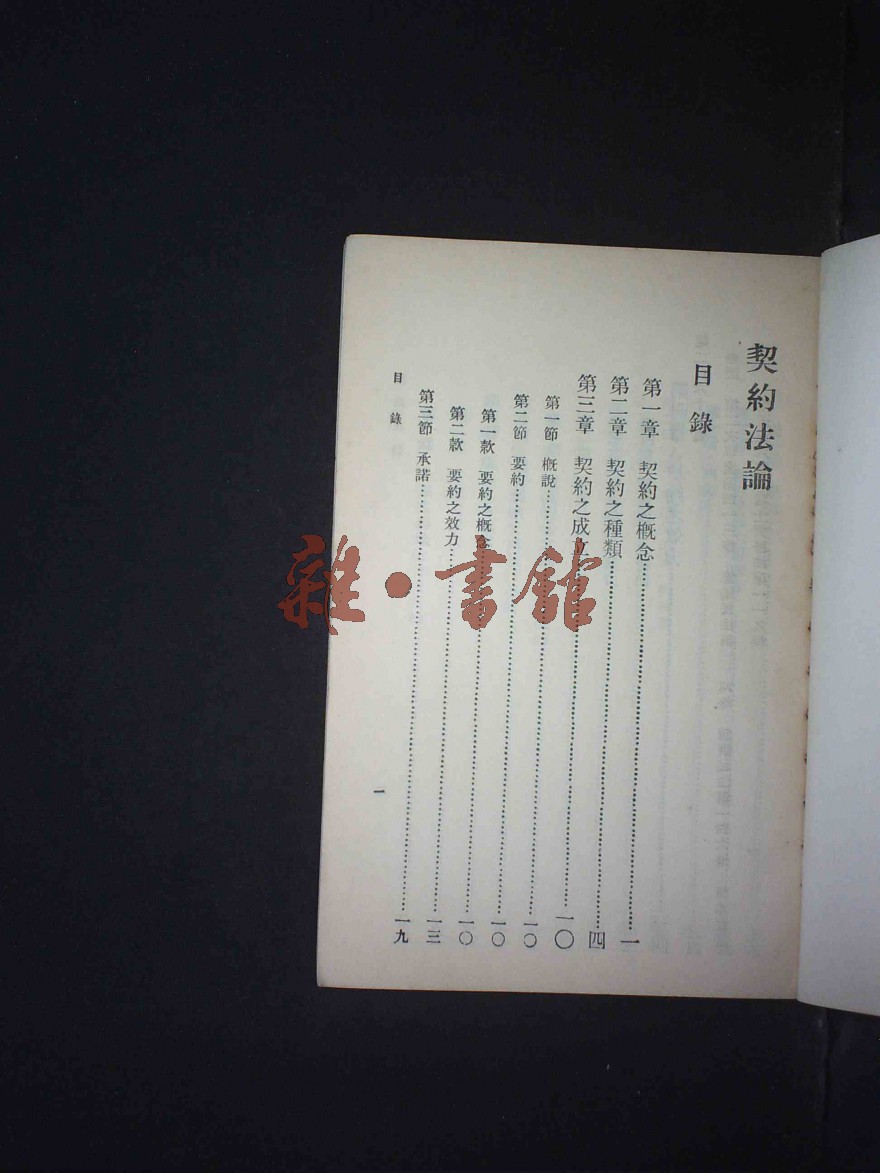 契約法論
目錄
第一章 契約之概念……一
第二章 契約之種類……四
第三章 契約之成立……一〇
第一節 概說……一〇
第二節 要約……一〇
第一款 要約之概念……一〇
第二款 要約之效力……一三
第三節 承諾……一九
目錄
一
雜·書館